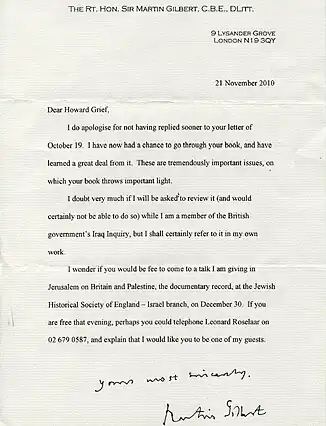 THE RT. HON. SIR MARTIN GILBERT, C.B.E., DLITT.
9 LYSANDER GROVE
LONDON N19 3QY
21 November 2010
Dear Howard Grief,
I do apologise for not having replied sooner to your letter of
October 19. I have now had a chance to go through your book, and have
learned a great deal from it. These are tremendously important issues, on
which your book throws important light.
I doubt very much if I will be asked to review it (and would
certainly not be able to do so) while I am a member of the British
government's Iraq Inquiry, but I shall certainly refer to it in my own
work.
I wonder if you would be fee to come to a talk I am giving in
Jerusalem on Britain and Palestine, the documentary record, at the Jewish
Historical Society of England – Israel branch, on December 30. If you
are free that evening, perhaps you could telephone Leonard Roselaar on
02 679 0587, and explain that I would like you to be one of my guests.
yours most sincerely,
Martin Gilbert